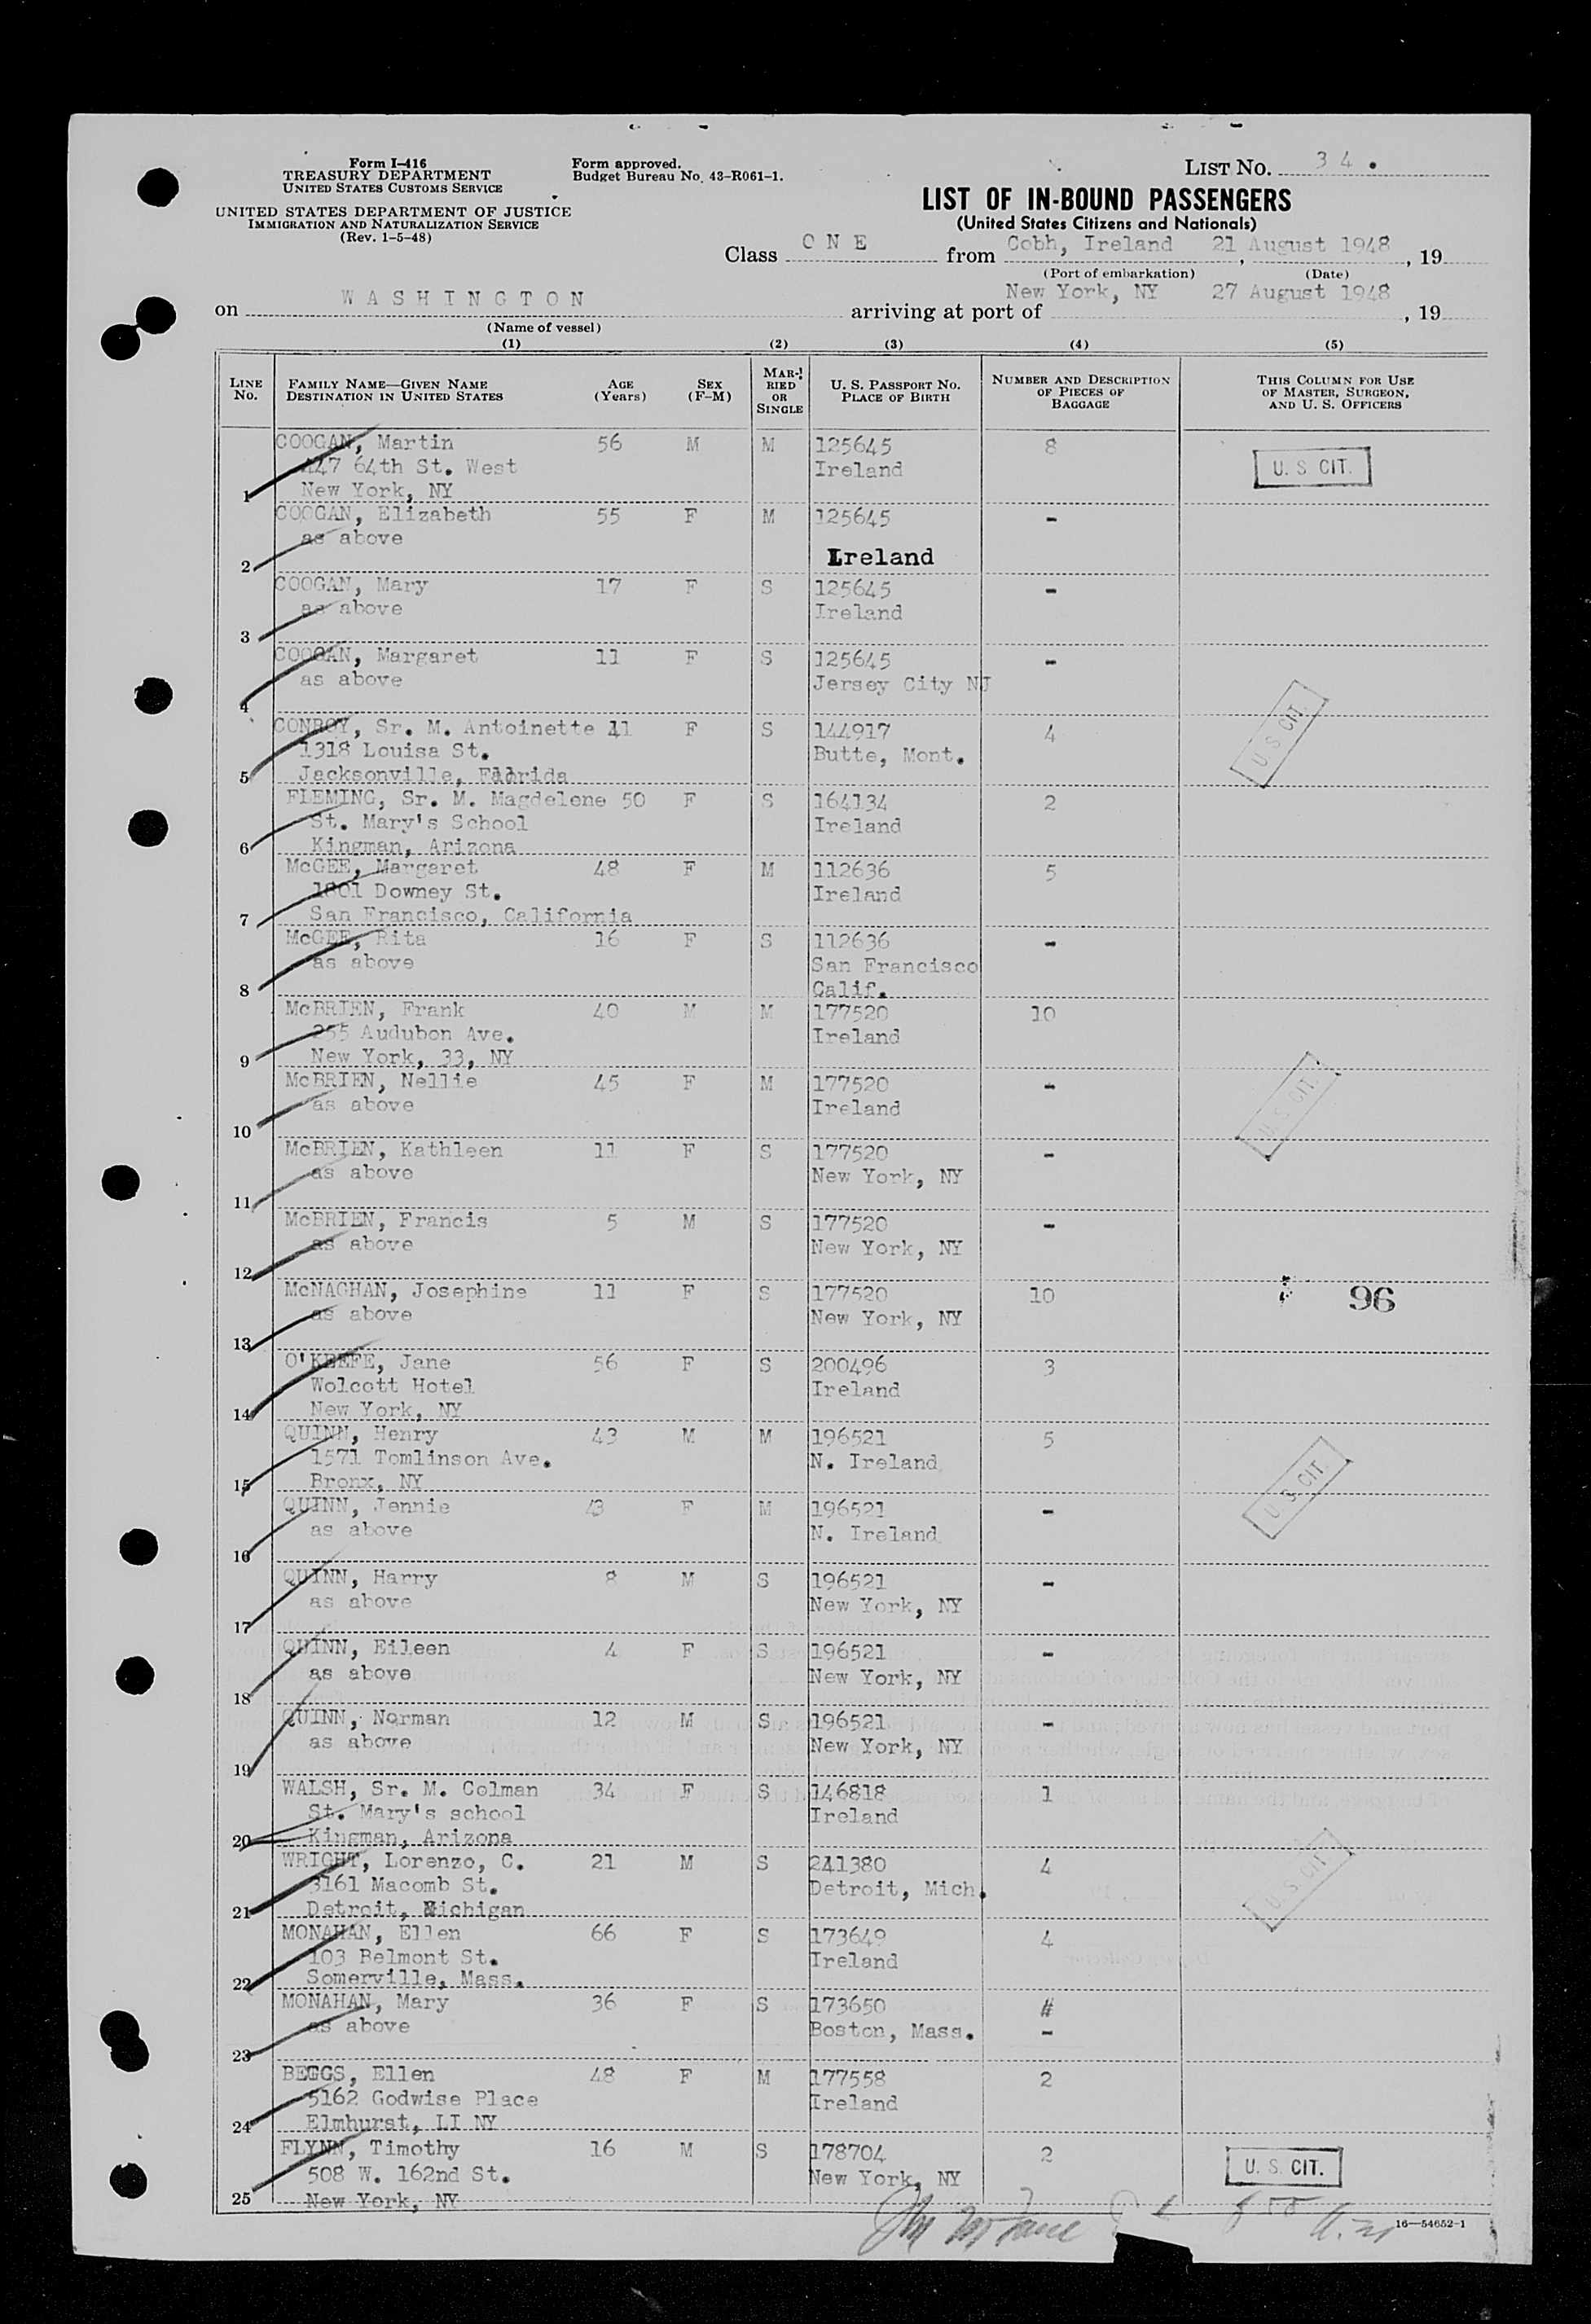 Form I-416
TREASURY DEPARTMENT
UNITED STATES CUSTOMS SERVICE
UNITED STATES DEPARTMENT OF JUSTICE
IMMIGRATION AND NATURALIZATION SERVICE
(Rev. 1-5-48)
Form approved.
Budget Bureau No. 43-R061-1.
LIST No. 34.
LIST OF IN-BOUND PASSENGERS
(United States Citizens and Nationals)
Class ONE from Cobh, Ireland, 21 August 1948, 19
(Port of embarkation) (Date)
on WASHINGTON arriving at port of New York, NY 27 August 1948, 19
(Name of vessel)
(1) (2) (3) (4) (5)
LINE No. FAMILY NAME—GIVEN NAME DESTINATION IN UNITED STATES AGE (Years) SEX (F-M) MARRIED OR SINGLE U. S. PASSPORT No. PLACE OF BIRTH NUMBER AND DESCRIPTION OF PIECES OF BAGGAGE THIS COLUMN FOR USE OF MASTER, SURGEON, AND U. S. OFFICERS
COOGAN, Martin 56 M M 125645 8
447 64th St. West Ireland U. S. CIT.
1 New York, NY
COOGAN, Elizabeth 55 F M 125645 -
as above
2 Ireland
COOGAN, Mary 17 F S 125645 -
as above Ireland
3
COOGAN, Margaret 11 F S 125645 -
as above Jersey City NJ
4
CONROY, Sr. M. Antoinette 41 F S 144917 4
1318 Louisa St. Butte, Mont. U. S. CIT.
5 Jacksonville, Florida
FLEMING, Sr. M. Magdelene 50 F S 164134 2
St. Mary's School Ireland
6 Kingman, Arizona
McGEE, Margaret 48 F M 112636 5
1801 Downey St. Ireland
7 San Francisco, California
McGEE, Rita 16 F S 112636 -
as above San Francisco
8 Calif.
McBRIEN, Frank 40 M M 177520 10
255 Audubon Ave. Ireland
9 New York, 33, NY
McBRIEN, Nellie 45 F M 177520 -
as above Ireland U. S. CIT.
10
McBRIEN, Kathleen 11 F S 177520 -
as above New York, NY
11
McBRIEN, Francis 5 M S 177520 -
as above New York, NY
12
McNAGHAN, Josephine 11 F S 177520 10 96
as above New York, NY
13
O'KEEFE, Jane 56 F S 200496 3
Wolcott Hotel Ireland
14 New York, NY
QUINN, Henry 43 M M 196521 5
1571 Tomlinson Ave. N. Ireland
15 Bronx, NY U. S. CIT.
QUINN, Jennie 43 F M 196521 -
as above N. Ireland
16
QUINN, Harry 8 M S 196521 -
as above New York, NY
17
QUINN, Eileen 4 F S 196521 -
as above New York, NY
18
QUINN, Norman 12 M S 196521 -
as above New York, NY
19
WALSH, Sr. M. Colman 34 F S 146818 1
St. Mary's school Ireland
20 Kingman, Arizona
WRIGHT, Lorenzo, C. 21 M S 241380 4
3161 Macomb St. Detroit, Mich. U. S. CIT.
21 Detroit, Michigan
MONAHAN, Ellen 66 F S 173649 4
103 Belmont St. Ireland
22 Somerville, Mass.
MONAHAN, Mary 36 F S 173650 #
as above Boston, Mass. -
23
BEGGS, Ellen 48 F M 177558 2
5162 Godwise Place Ireland
24 Elmhurst, LI NY
FLYNN, Timothy 16 M S 178704 2
508 W. 162nd St. New York, NY U. S. CIT.
25 New York, NY
16—54652-1